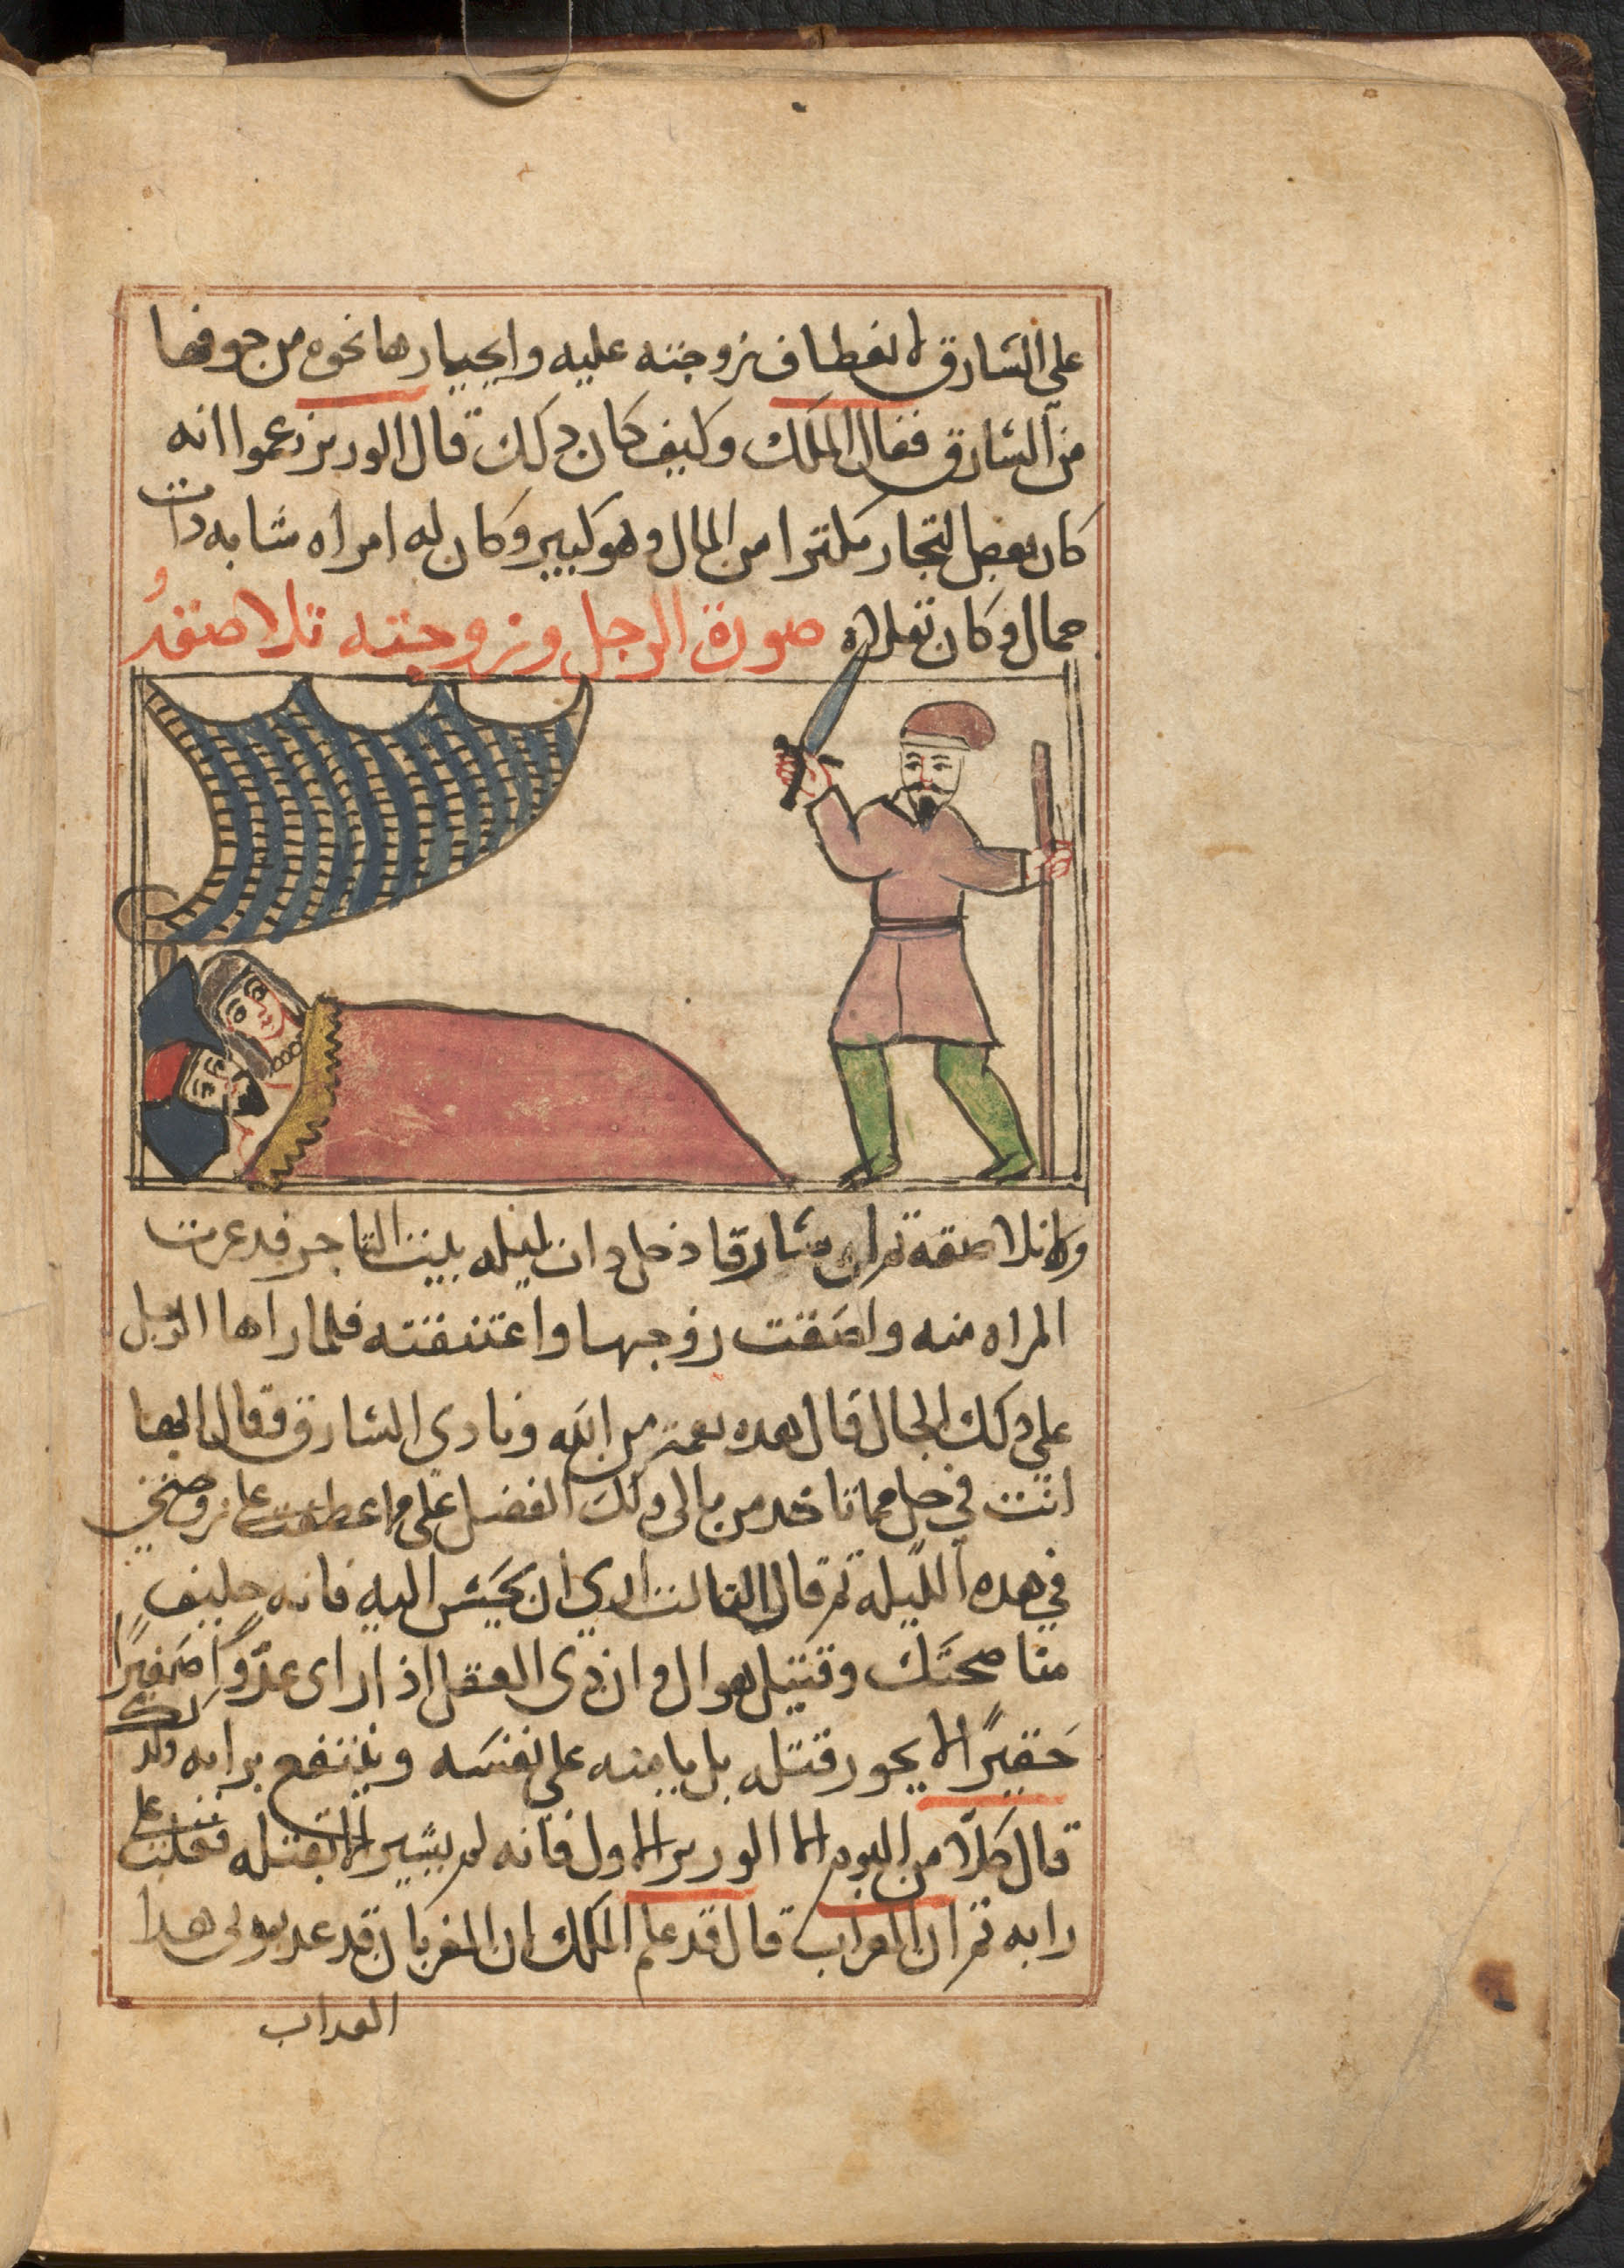 على السارق لانعطاف زوجته عليه وانحيازها نحوه من خوفها
من السارق فقال الملك وكيف كان دلك قال الوزير زعموا انه
كان بعض التجار مكترا من المال وهو كبير وكان له امراه شابه دات
جمال وكان تقلاه صورة الرجل وزوجته تلاصقه
ولا تلاصقه تم ان سارقا دخل دات ليله بيت التاجر فدعرت
المراه منه والصقت زوجها واعتنقته فلما راها الرجل
على دلك الحال قال هده نعمه من الله ونادى السارق وقال ايها
انت في حل مما تاخد من مالى ولك الفضل على عطفت على زوجتي
في هده الليله تم قال التالت ان يحسن اليه فانه
مناصحتك وقتيل وان ذى العقل اذا راى عدوًا صغيرًا
حقيرًا لا يجوز قتله بل يامنه على نفسه وينتفع برايه ولم
قال كلا من البوم الا الوزير الاول فانه لم يشير الا بقتله فقلت على
رايه تم ان الغراب قال قد علم الملك ان الغربان قد
الغراب